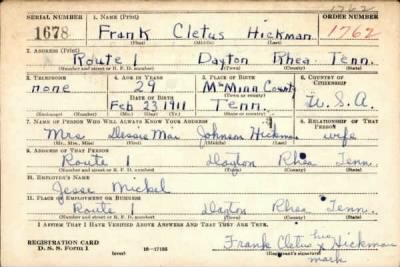 1762
SERIAL NUMBER 1. NAME (Print) ORDER NUMBER
1678 Frank Cletus Hickman 1762
(First) (Middle) (Last)
2. ADDRESS (Print)
Route 1 Dayton Rhea Tenn.
(Number and street or R. F. D. number) (Town) (County) (State)
3. TELEPHONE 4. AGE IN YEARS 5. PLACE OF BIRTH 6. COUNTRY OF CITIZENSHIP
none 29 McMinn County
DATE OF BIRTH (Town or county)
Feb 23 1911 Tenn. U.S.A.
(Exchange) (Number) (Mo.) (Day) (Yr.) (State or country)
7. NAME OF PERSON WHO WILL ALWAYS KNOW YOUR ADDRESS 8. RELATIONSHIP OF THAT PERSON
Mrs Dessie Mai Johnson Hickman wife
(Mr., Mrs., Miss) (First) (Middle) (Last)
9. ADDRESS OF THAT PERSON
Route 1 Dayton Rhea Tenn.
(Number and street or R. F. D. number) (Town) (County) (State)
10. EMPLOYER'S NAME
Jesse Mickel
11. PLACE OF EMPLOYMENT OR BUSINESS
Route 1 Dayton Rhea Tenn.
(Number and street or R. F. D. number) (Town) (County) (State)
I AFFIRM THAT I HAVE VERIFIED ABOVE ANSWERS AND THAT THEY ARE TRUE.
REGISTRATION CARD his
D. S. S. Form 1 16-17105 Frank Cletus x Hickman
(over) mark